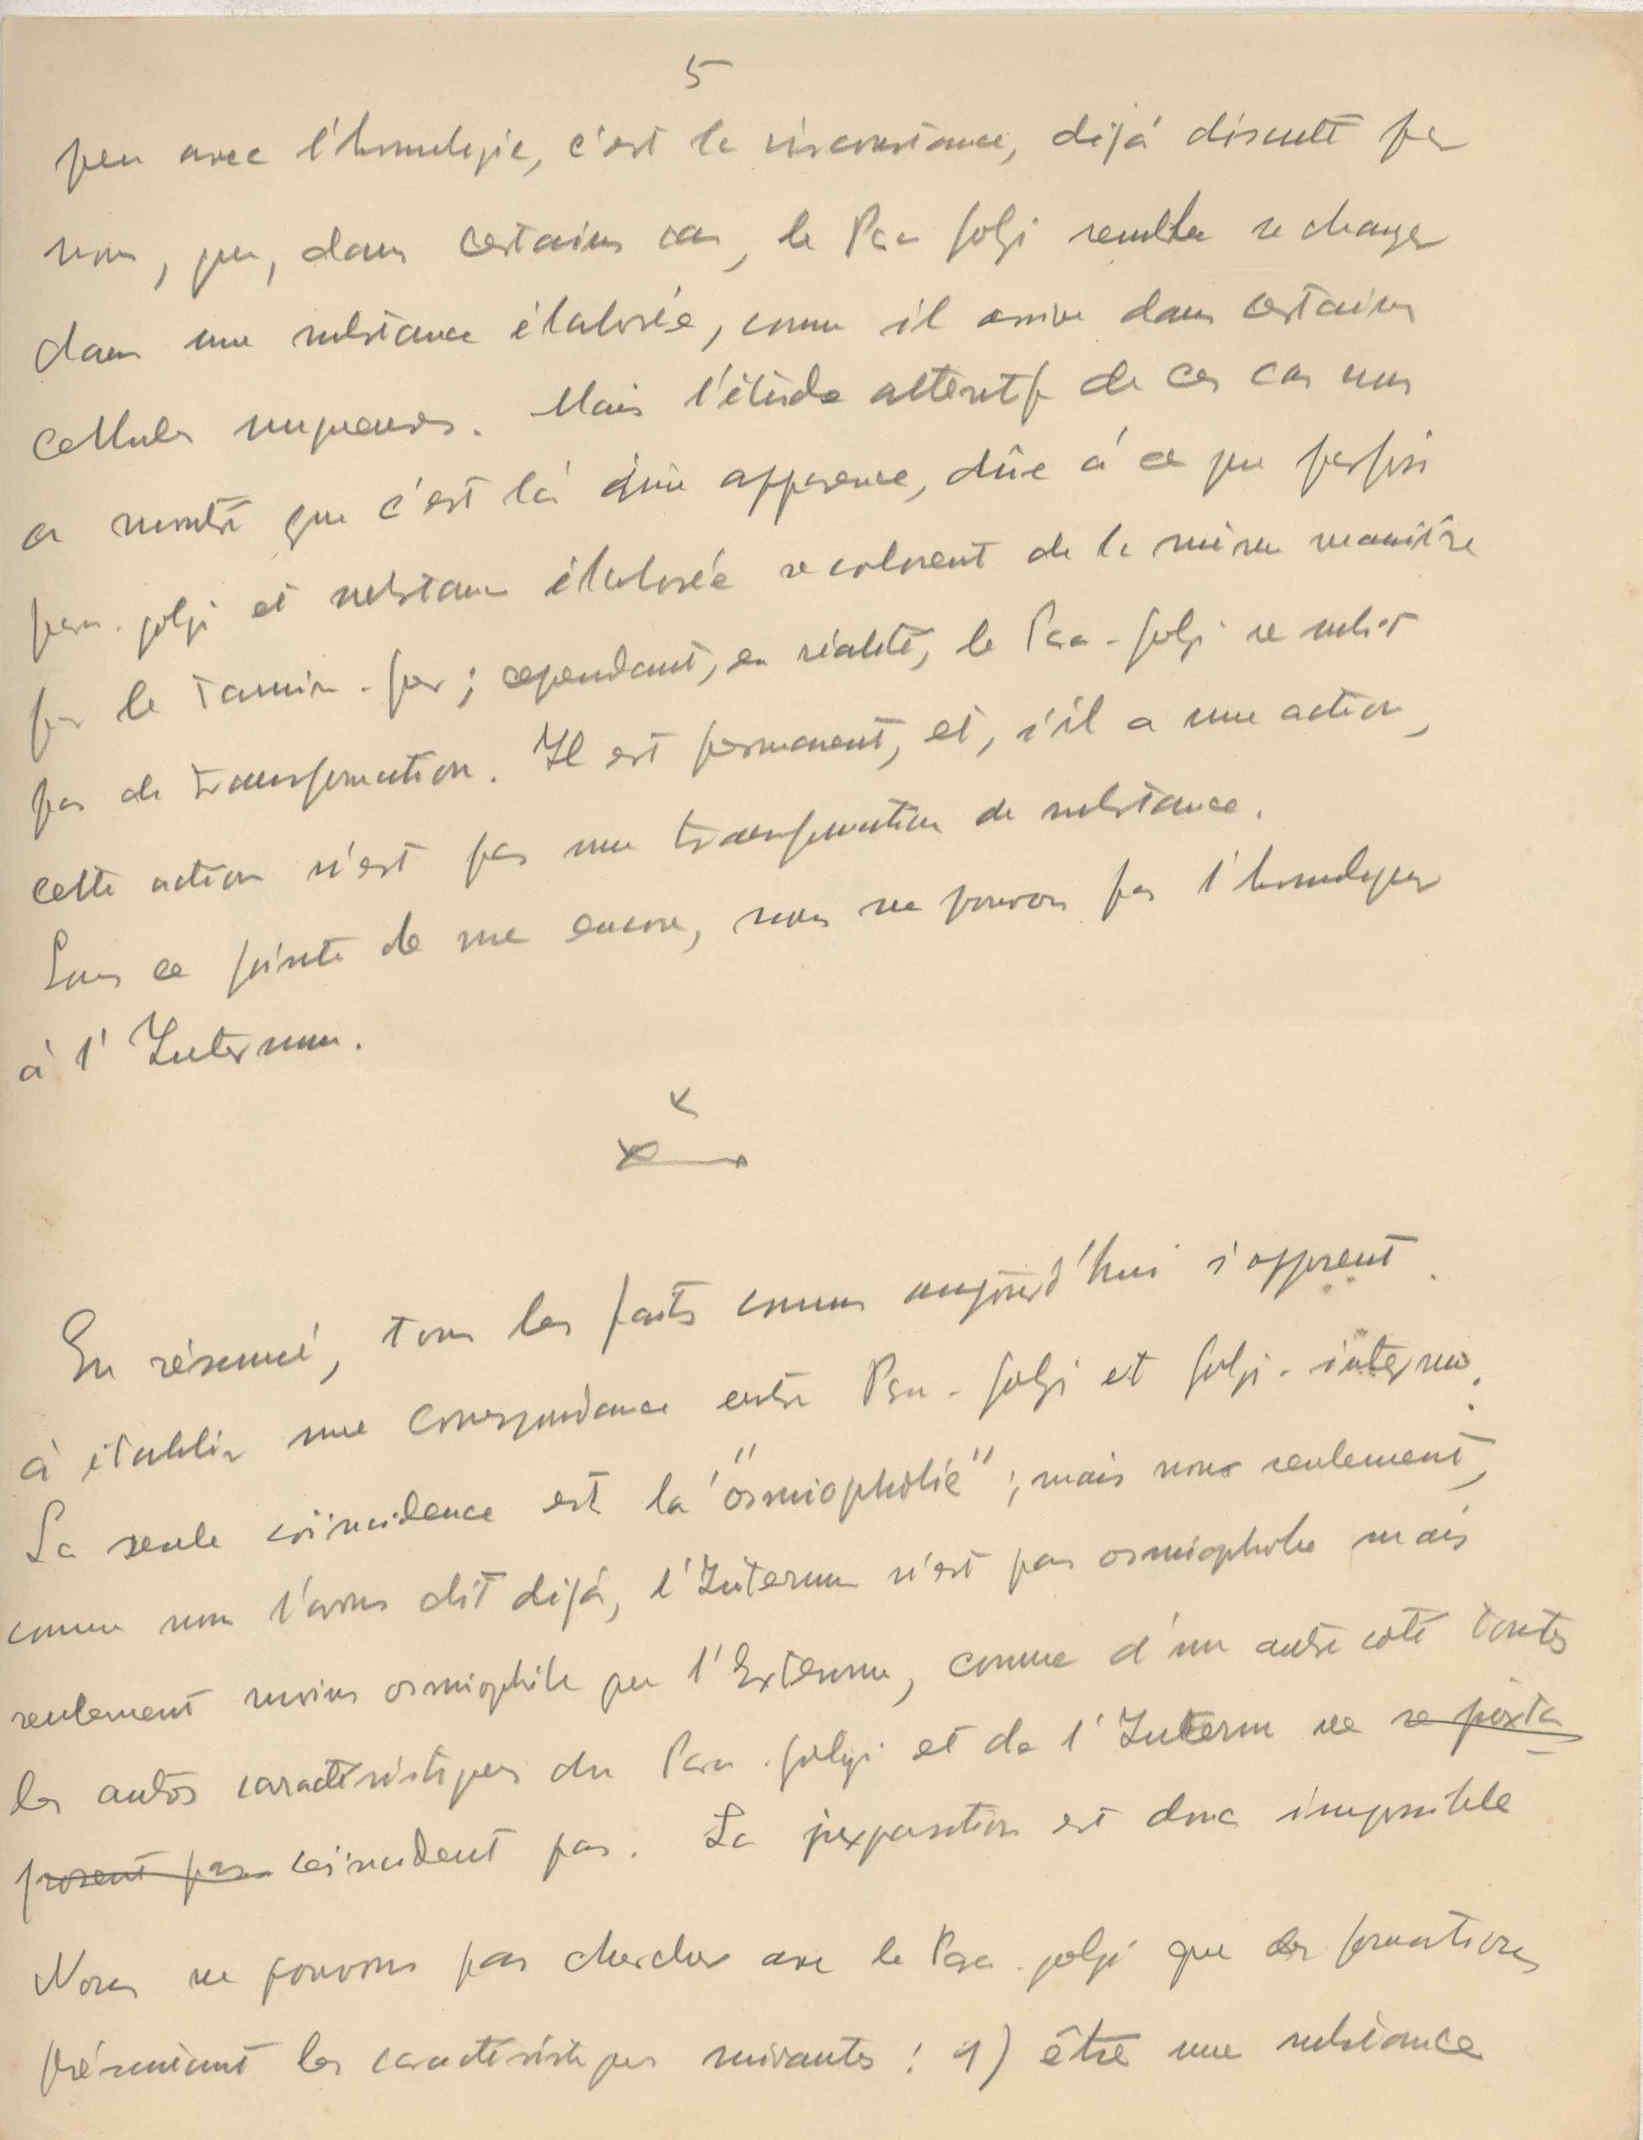 5
peu avec l'homologie, c'est la circonstance, déjà discuté par
nous, que, dans certains cas, le Para Golgi semble se changer
dans une substance élaborée, comme il arrive dans certaines
cellules muqueuses. Mais l'étude attentif de ces cas nous
a montré que c'est là une apparence, dûe à ce que parfois
para-golgi et substance élaborée se colorent de la même manière
par le tannin-fer; cependant, en réalité, le Para-Golgi ne subit
pas de transformation. Il est permanent, et, s'il a une action,
cette action n'est pas une transformation de substance.
Sous ce pointe de vue encore, nous ne pouvons pas l'homologuer
à l'Internum.
En résumé, tous les faits connus aujourd'hui s'opposent
à établir une correspondance entre Para-Golgi et Golgi-internum.
La seule coïncidence est la "osmiophobie"; mais non seulement,
comme nous l'avons dit déjà, l'Internum n'est pas osmiophobe mais
seulement moins osmiophile que l'Externum, comme d'un autre coté toutes
les autres caractéristiques du Para-golgi et de l'Internum ne se juxta
posent pas coïncident pas. La juxtaposition est donc impossible
Nous ne pouvons pas chercher avec le Para-golgi que des formations
présentant les caractéristiques suivantes: 1) être une substance